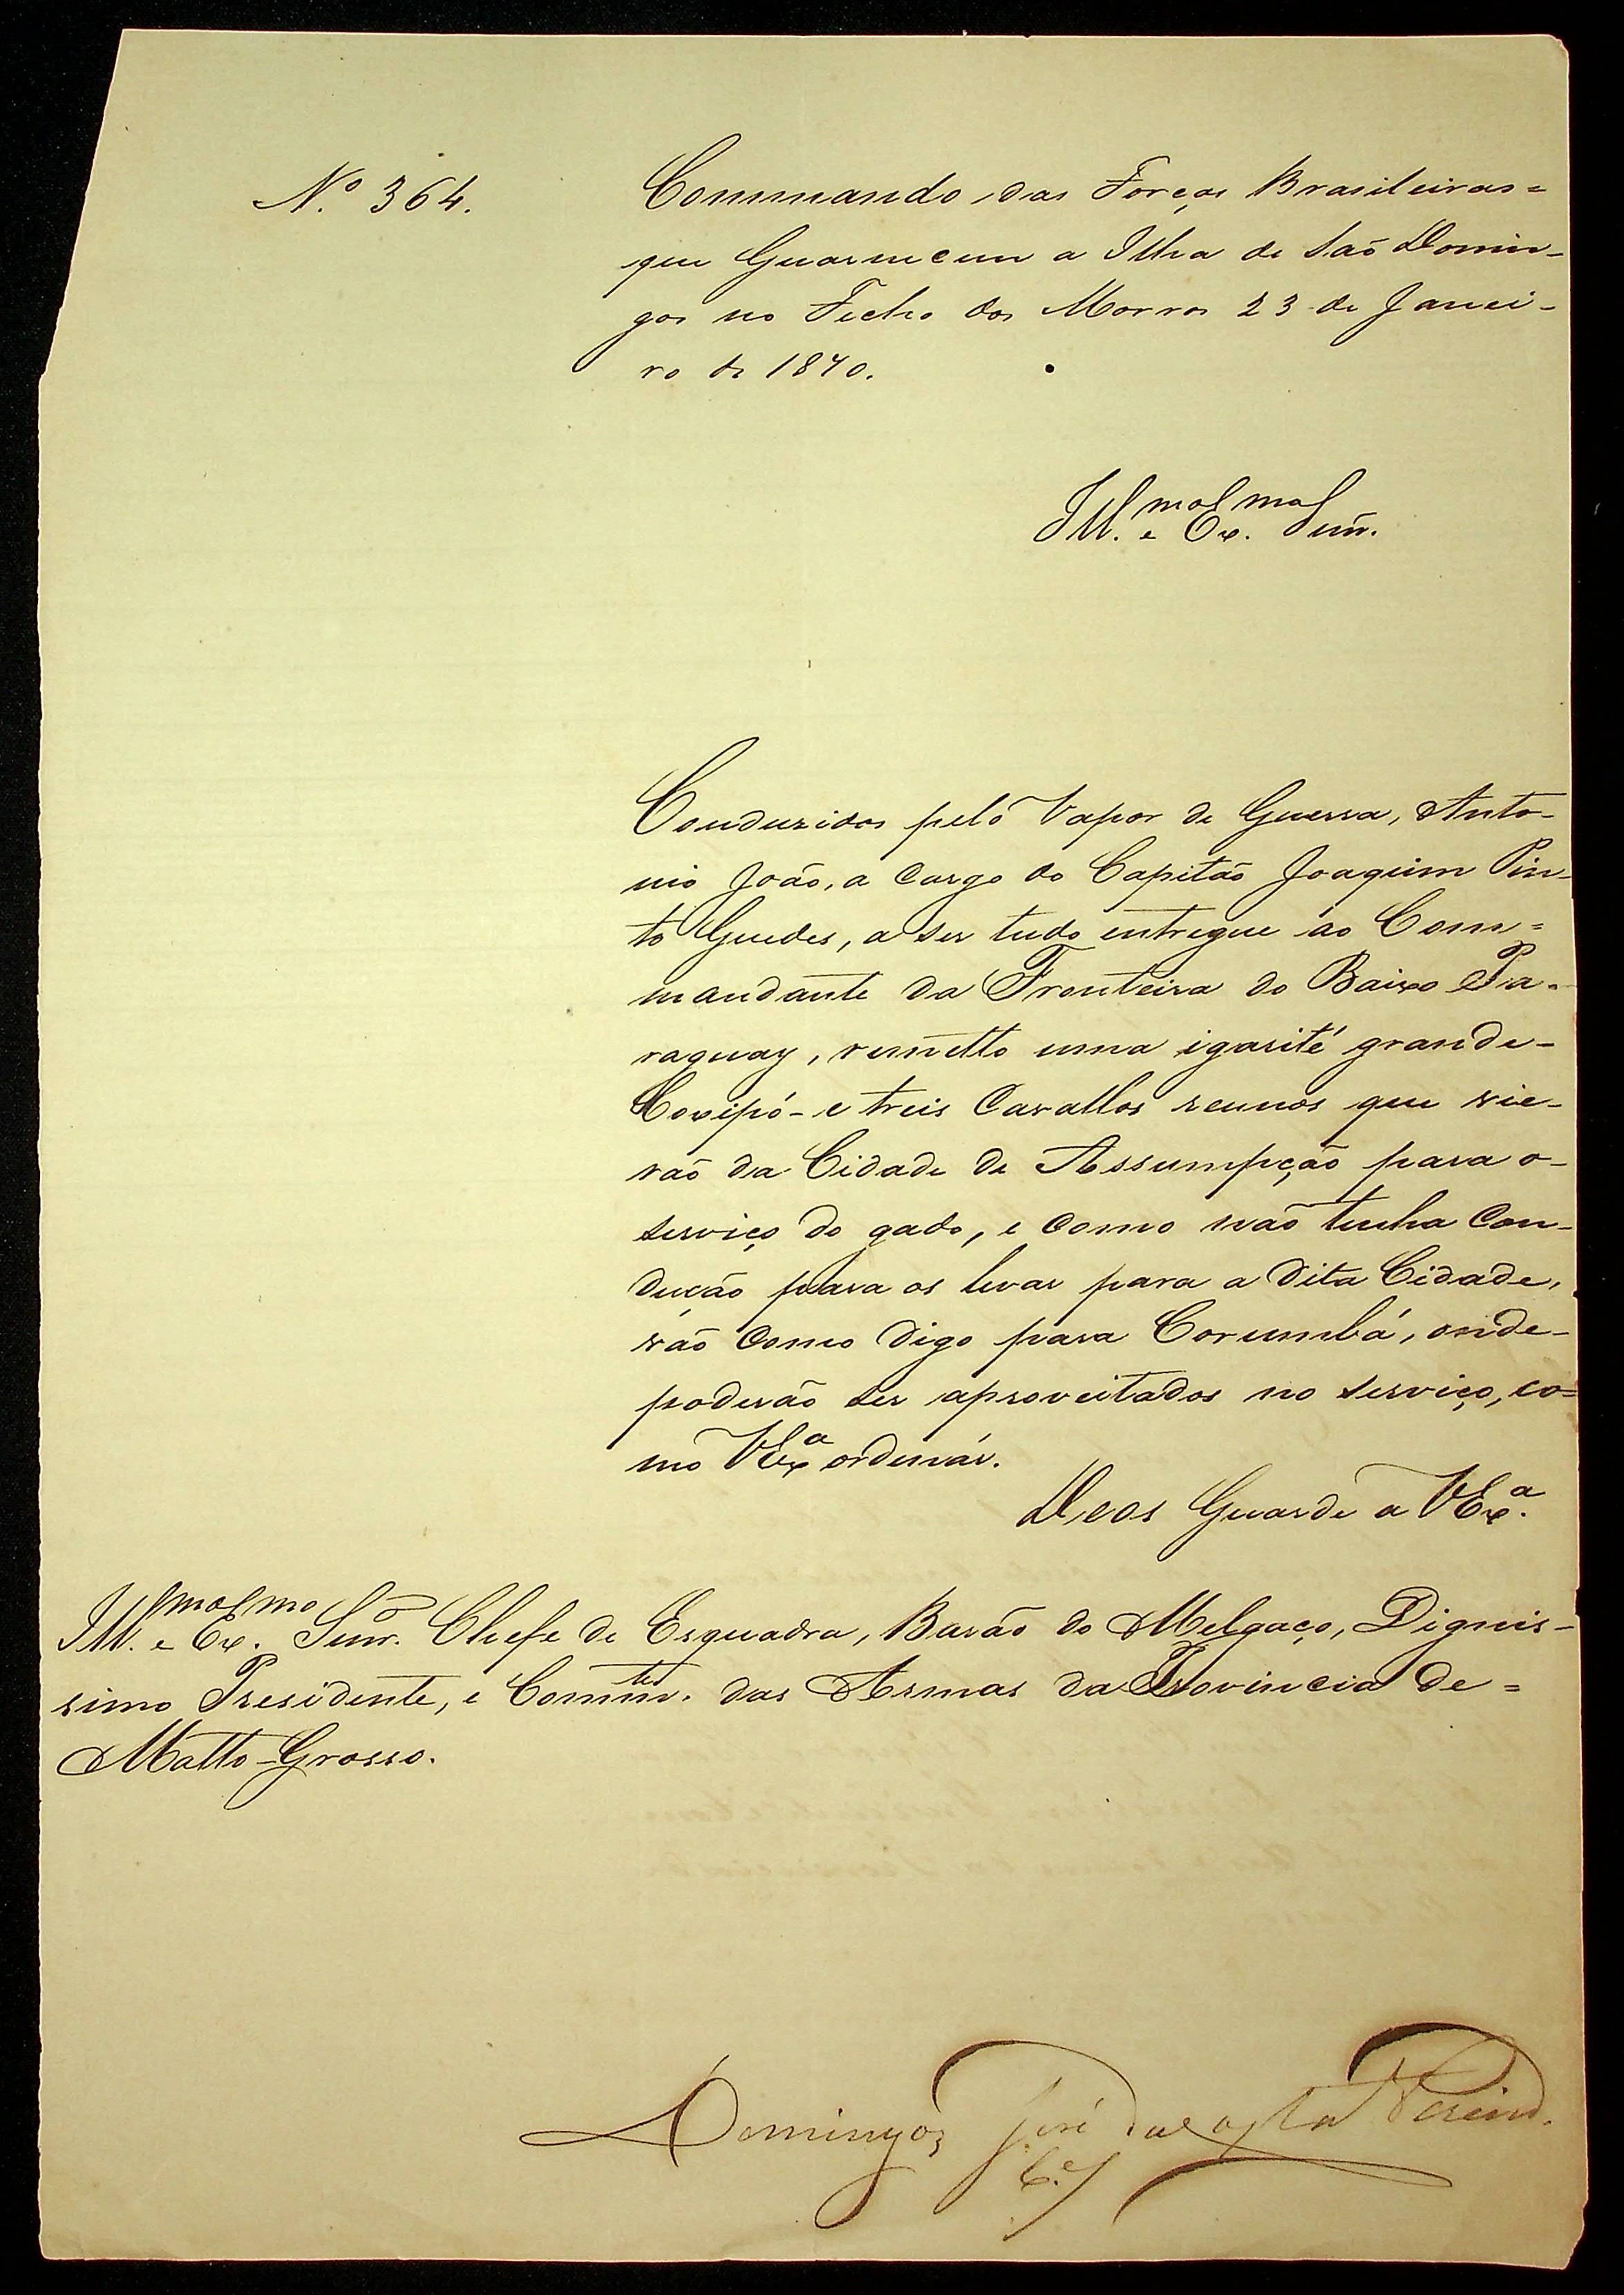 N.º 364.
Commando das Forças Brasileiras=
que Guarnecem a Ilha de Saõ Domin-
gos no Fecho dos Morros 23 de Janei-
ro de 1870.
Ill.mo e Ex.mo Senr.
Conduzidos pelo Vapor de Guerra, Anto-
nio João, a cargo do Capitão Joaquim Pin-
to Guedes, a ser tudo entregue ao Com=
mandante da Fronteira do Baixo Pa-
raguay, remetto uma igarité grande-
Coxipó- e treis Cavallos reunos que vie-
raõ da Cidade de Assumpção para o-
serviço do gado, e como naõ tenha Con-
ducção para os levar para a dita Cidade,
vaõ como digo para Corumbá, onde-
poderão ser aproveitados no serviço, co=
mo VExª ordenár.
Deos Guarde a VExª.
Ill.mo e Ex.mo Senr. Chefe de Esquadra, Barão de Melgaço, Dignis-
simo Presidente, e Comm.te das Armas da Provincia de=
Matto-Grosso.
Domingos José da Costa Pereira
C.el